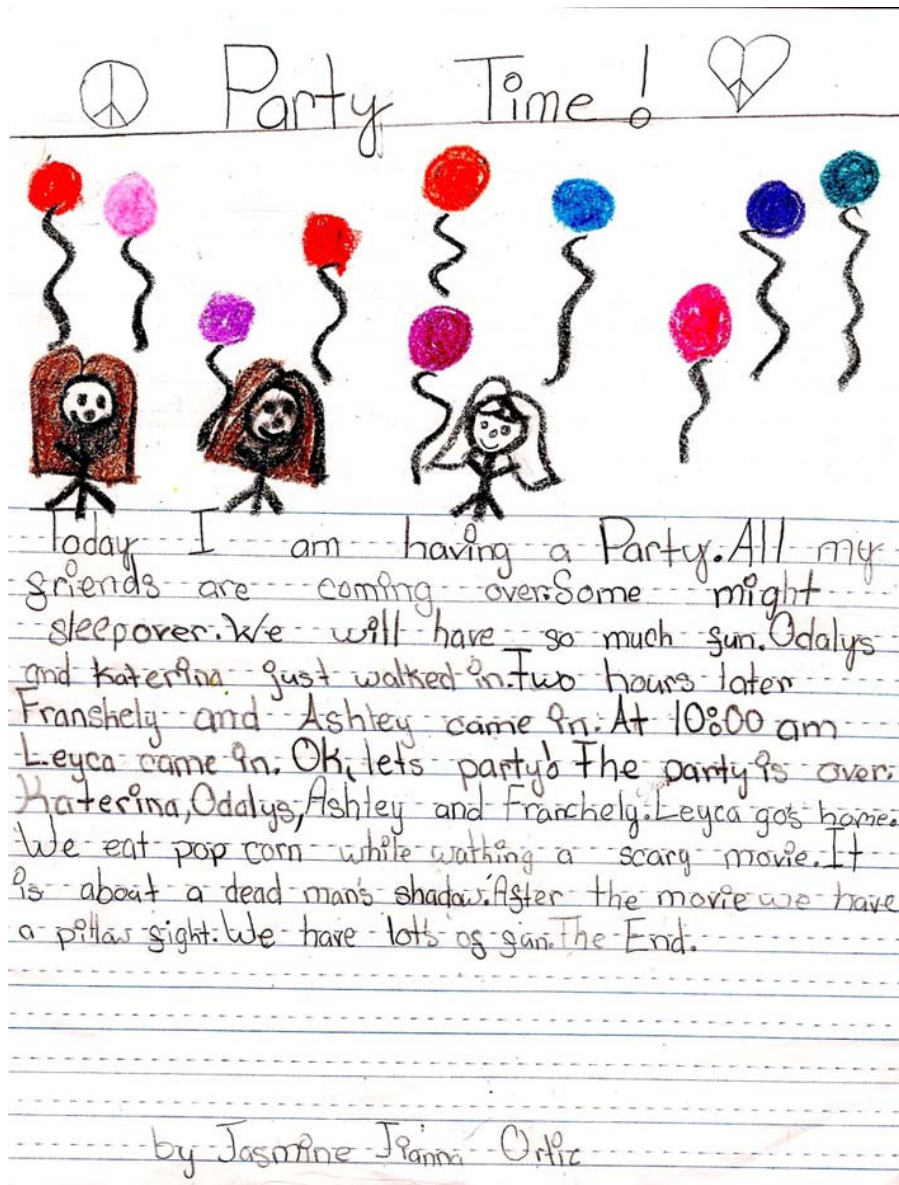 Party Time!
Today I am having a Party. All my
friends are coming over. Some might
sleepover. We will have so much fun. Odalys
and Katerina just walked in. Two hours later
Franshely and Ashley came in. At 10:00 am
Leyca came in. Ok, lets party! The party is over.
Katerina, Odalys, Ashley and Franchely. Leyca go's home.
We eat pop corn while wathing a scary movie. It
is about a dead man's shadow. After the movie we have
a pillow fight. We have lot's of fun. The End.
by Jasmine Jianna Ortiz